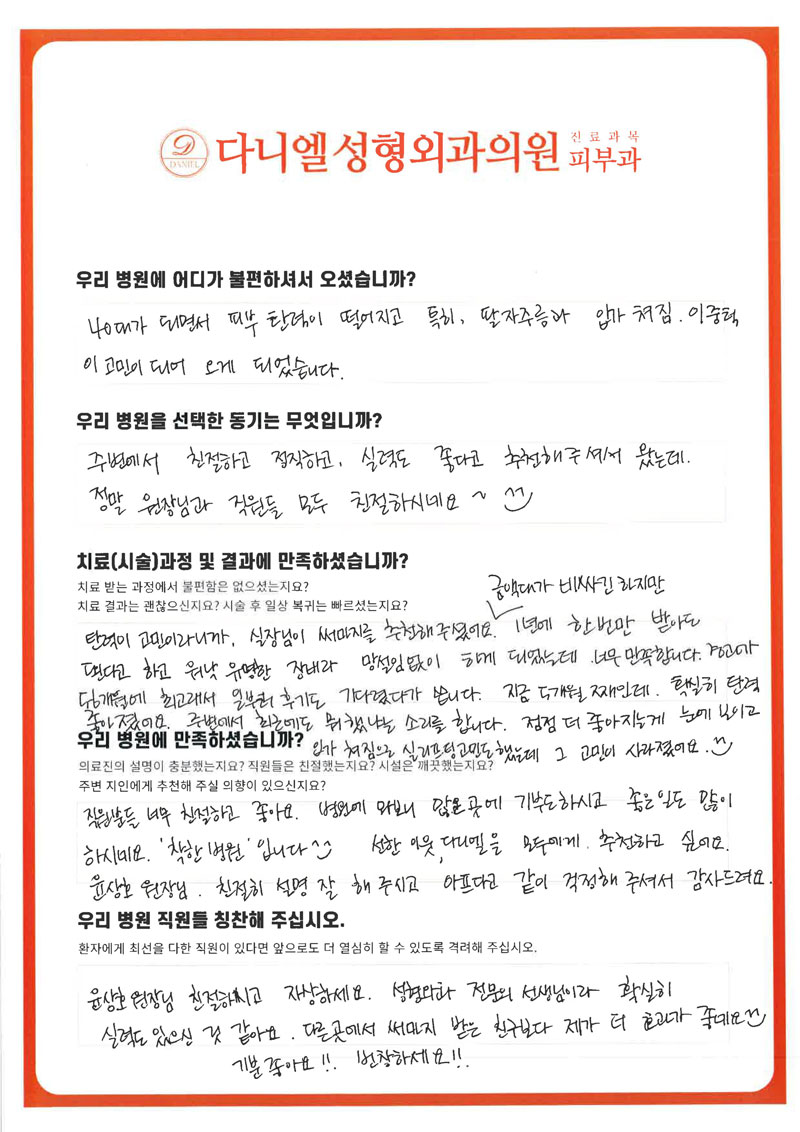 DANIEL 다니엘성형외과의원 진료과목 피부과
우리 병원에 어디가 불편하셔서 오셨습니까?
40대가 되면서 피부 탄력이 떨어지고 특히, 팔자주름과 입가 쳐짐. 이중턱
이 고민이 되어 오게 되었습니다.
우리 병원을 선택한 동기는 무엇입니까?
주변에서 친절하고 정직하고, 실력도 좋다고 추천해주셔서 왔는데.
정말 원장님과 직원들 모두 친절하시네요~ ^^
치료(시술)과정 및 결과에 만족하셨습니까?
치료 받는 과정에서 불편함은 없으셨는지요?
치료 결과는 괜찮으신지요? 시술 후 일상 복귀는 빠르셨는지요?
금액대가 비싸긴 하지만
탄력이 고민이라니까, 실장님이 써마지를 추천해주셨어요. 1년에 한번만 받아도
된다고 하고 워낙 유명한 장비라 망설임없이 하게 되었는데 너무 만족합니다. 경과가
5,6개월에 최고래서 일부러 후기도 기다렸다가 씁니다. 지금 5개월 째인데. 확실히 탄력
좋아졌어요. 주변에서 최근에도 뭐했냐는 소리를 합니다. 점점 더 좋아지는게 눈에 보이고
우리 병원에 만족하셨습니까?
입가 쳐짐으로 실리프팅고민도했었는데 그 고민이 사라졌어요. ^^
의료진의 설명이 충분했는지요? 직원들은 친절했는지요? 시설은 깨끗했는지요?
주변 지인에게 추천해 주실 의향이 있으신지요?
직원분들 너무 친절하고 좋아요. 병원에 와보니 많은곳에 기부도하시고 좋은일도 많이
하시네요. '착한병원'입니다^^ 선한 이웃, 다니엘을 모두에게 추천하고 싶어요.
윤상호 원장님. 친절히 설명 잘 해 주시고 아프다고 같이 걱정해 주셔서 감사드려요.
우리 병원 직원들 칭찬해 주십시오.
환자에게 최선을 다한 직원이 있다면 앞으로도 더 열심히 할 수 있도록 격려해 주십시오.
윤상호원장님 친절하시고 자상하세요. 성형외과 전문의 선생님이라 확실히
실력도 있으신 것 같아요. 다른곳에서 써마지 받은 친구보다 제가 더 효과가 좋네요^^
기분좋아요!!. 번창하세요!!.